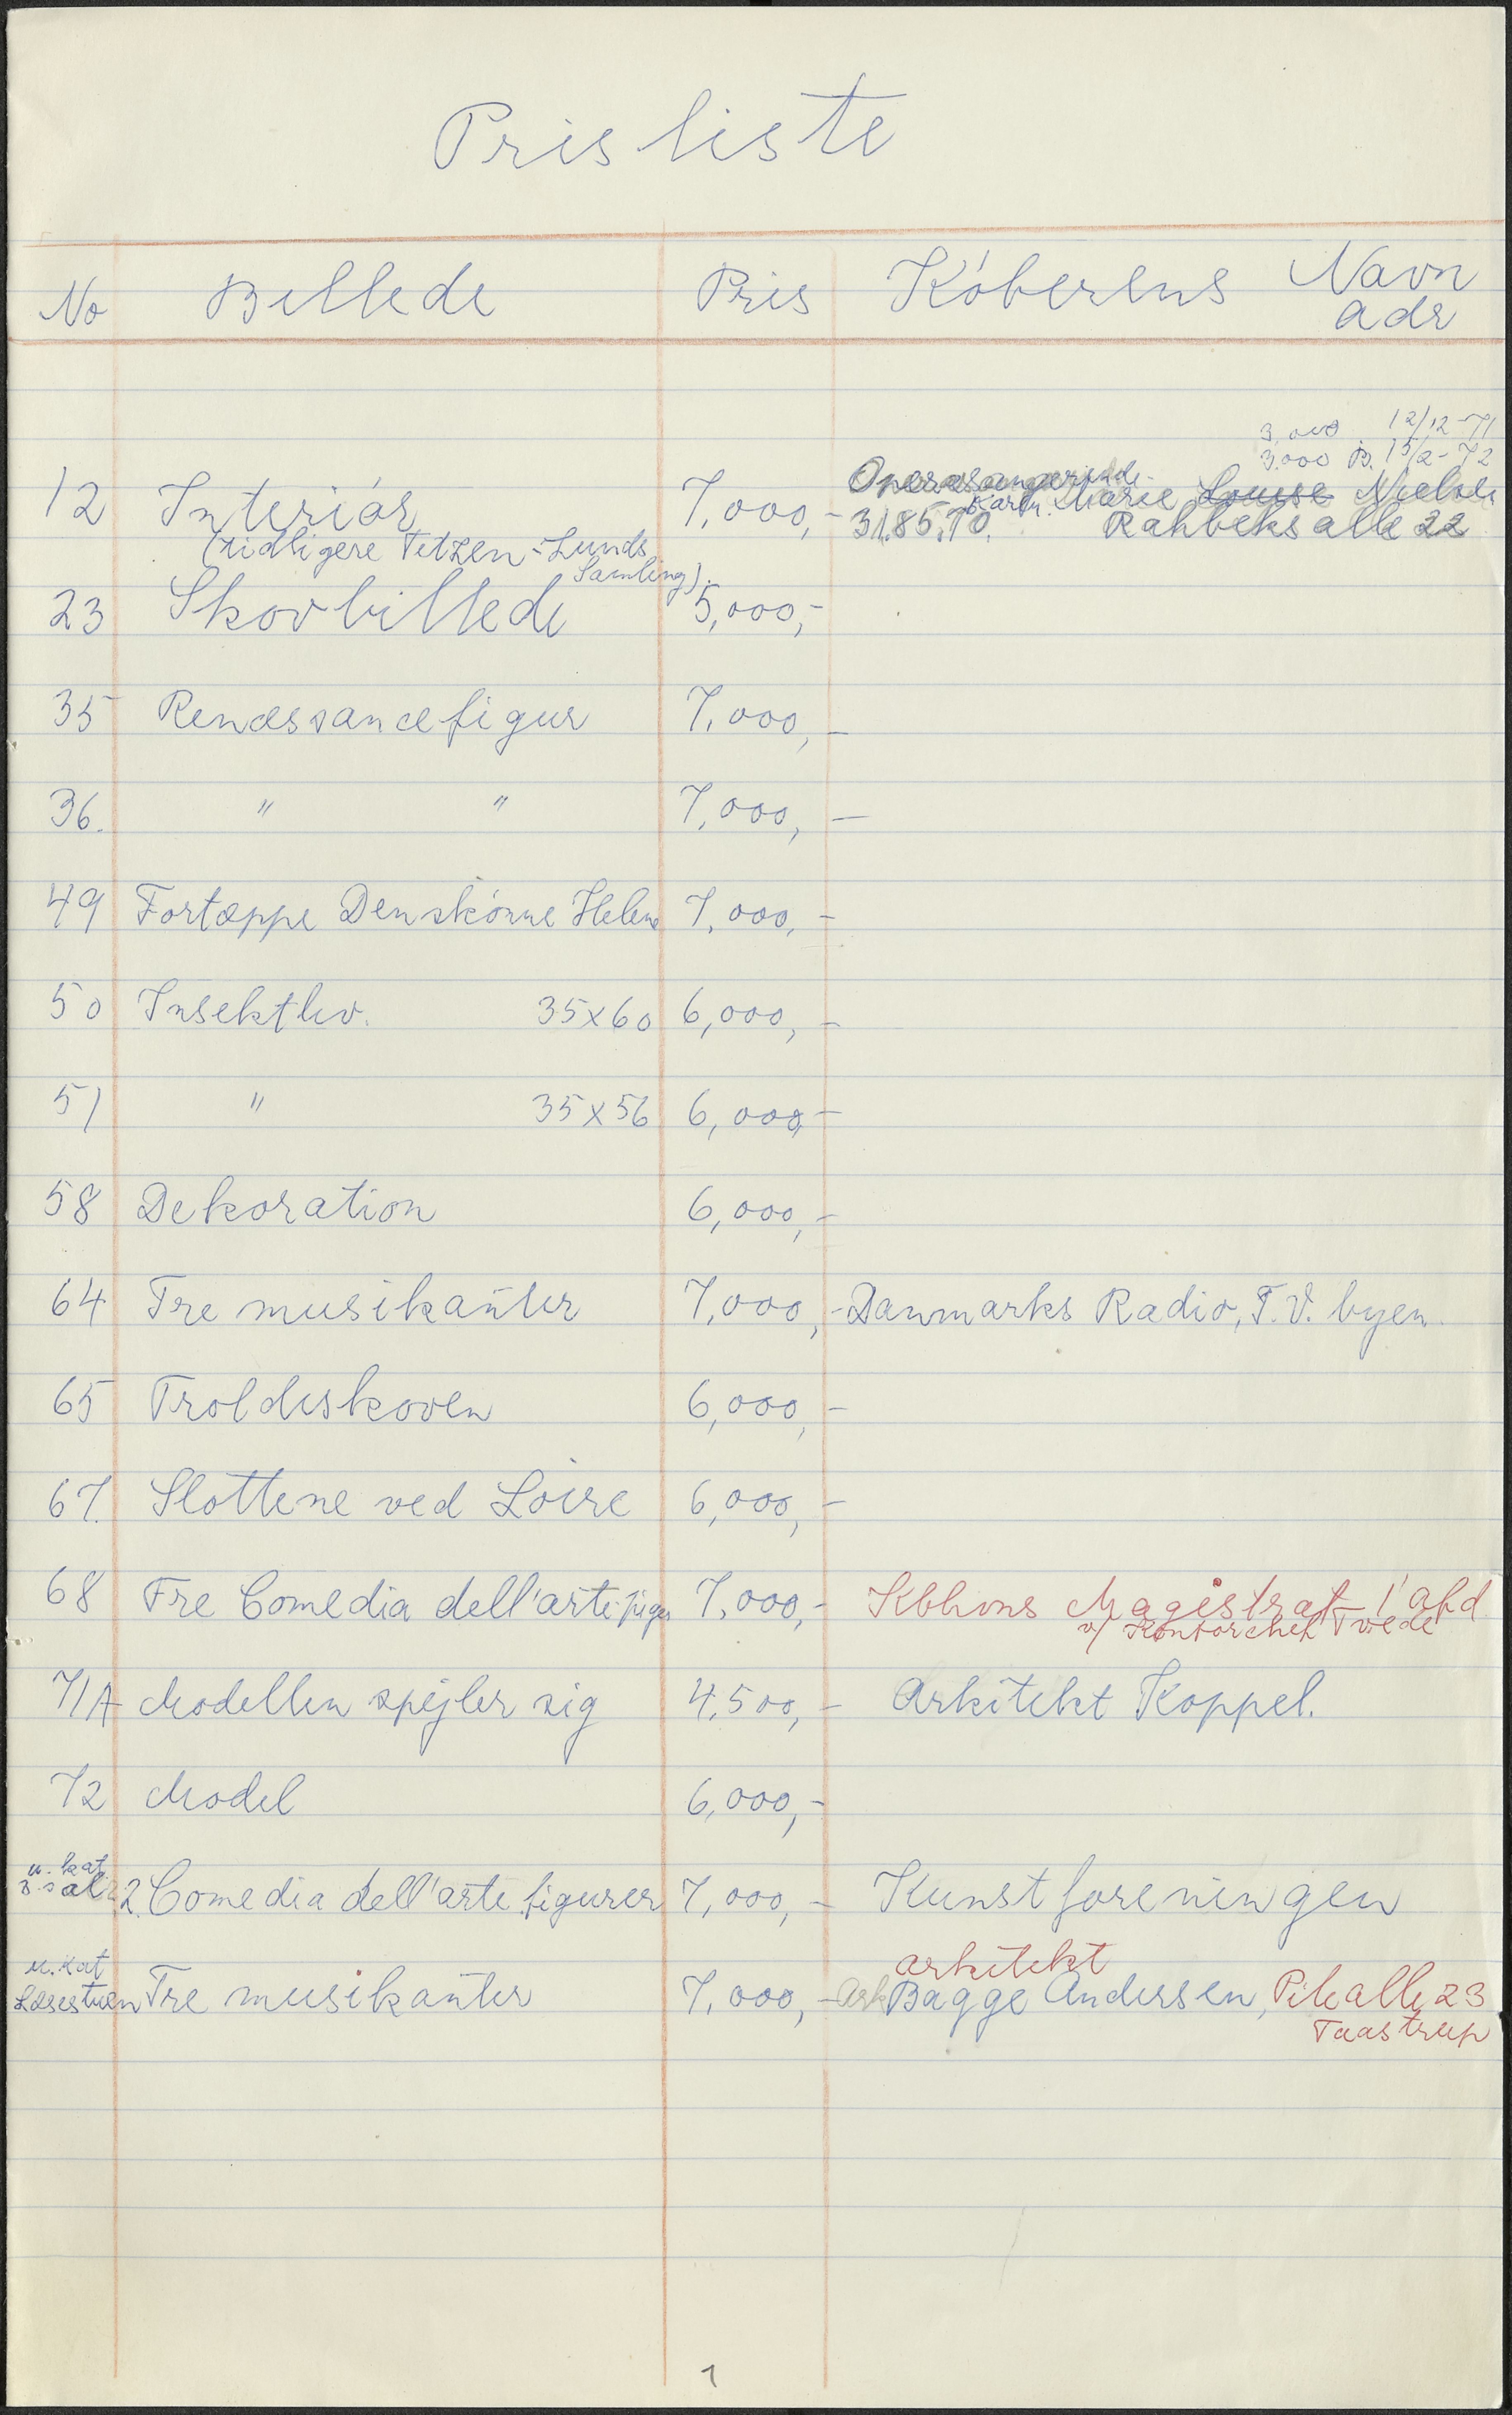 Prisliste
No Billede Pris Köberens Navn
adr
3.000 12/12-71
3.000 B. 15/2-72
Operasangerinde
12 Interiör 7,000,- Karin. Marie Louise Nielsen
31.85.70. Rahbeks alle 22
(tidligere Tetzen-Lunds
Samling).
23 Skovbillede 5,000,-
35 Renæssancefigur 7,000,-
36. " " 7,000,-
49 Fortæppe Den skönne Helene 7,000,-
50 Insektliv. 35x60 6,000,-
51 " 35x56 6,000,-
58 Dekoration 6,000,-
64 Tre musikanter 7,000,- Danmarks Radio, T.V. byen
65 Troldeskoven 6,000,-
67. Slottene ved Loire 6,000,-
68 Tre Comedia dell'arte figur 7,000,- Kbhvns Magistrat 1' afd
v/ Kontorchef Tvede
71A Modellen spejler sig 4,500,- Arkitekt Koppel.
72 Model 6,000,-
u. kat
3. sal 2. Comedia dell'arte figurer 7,000,- Kunstforeningen
u. kat arkitekt
Læsestuen Tre musikanter 7,000,- Ark Bagge Andersen, Pilealle 23
Taastrup
1